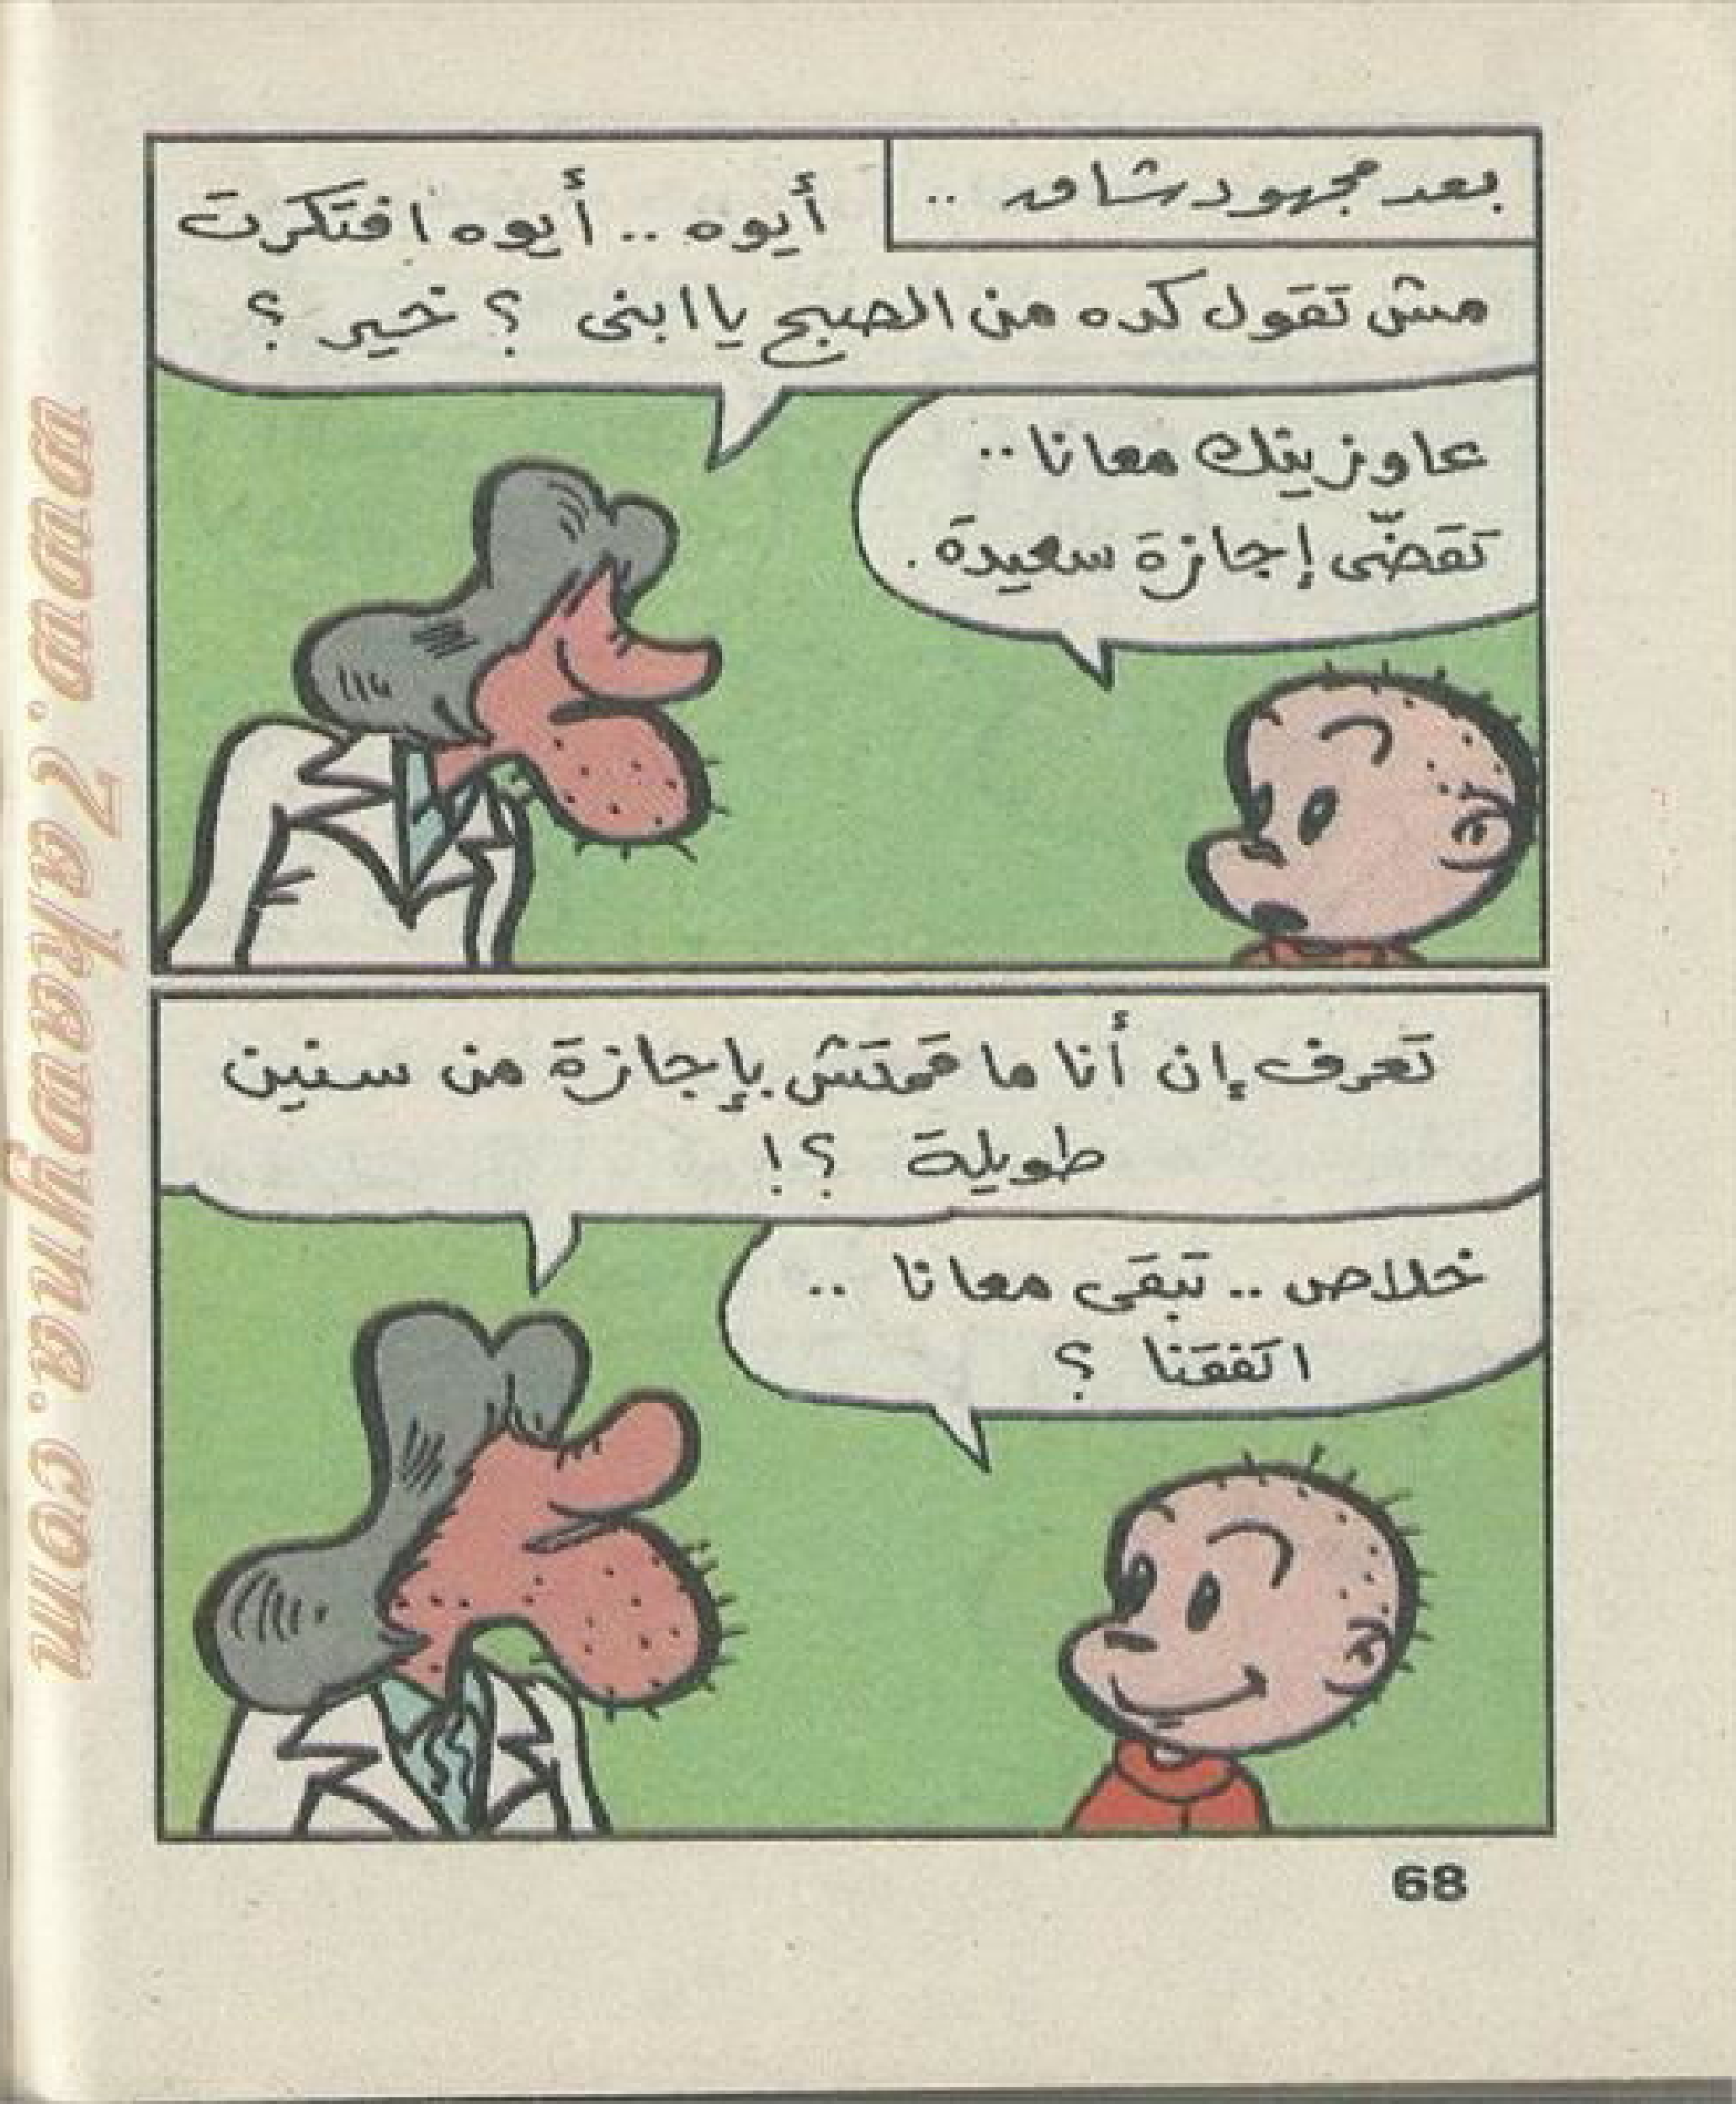 بعد مجهود شاق ..
أيوه .. أيوه افتكرت
مش تقول كده من الصبح يا ابنى ؟ خير ؟
عاوزينك معانا ..
تقضّى إجازة سعيدة .
تعرف إن أنا ما قمتش بإجازة من سنين
طويلة ؟!
خلاص .. تبقى معانا ..
اتفقنا ؟
68